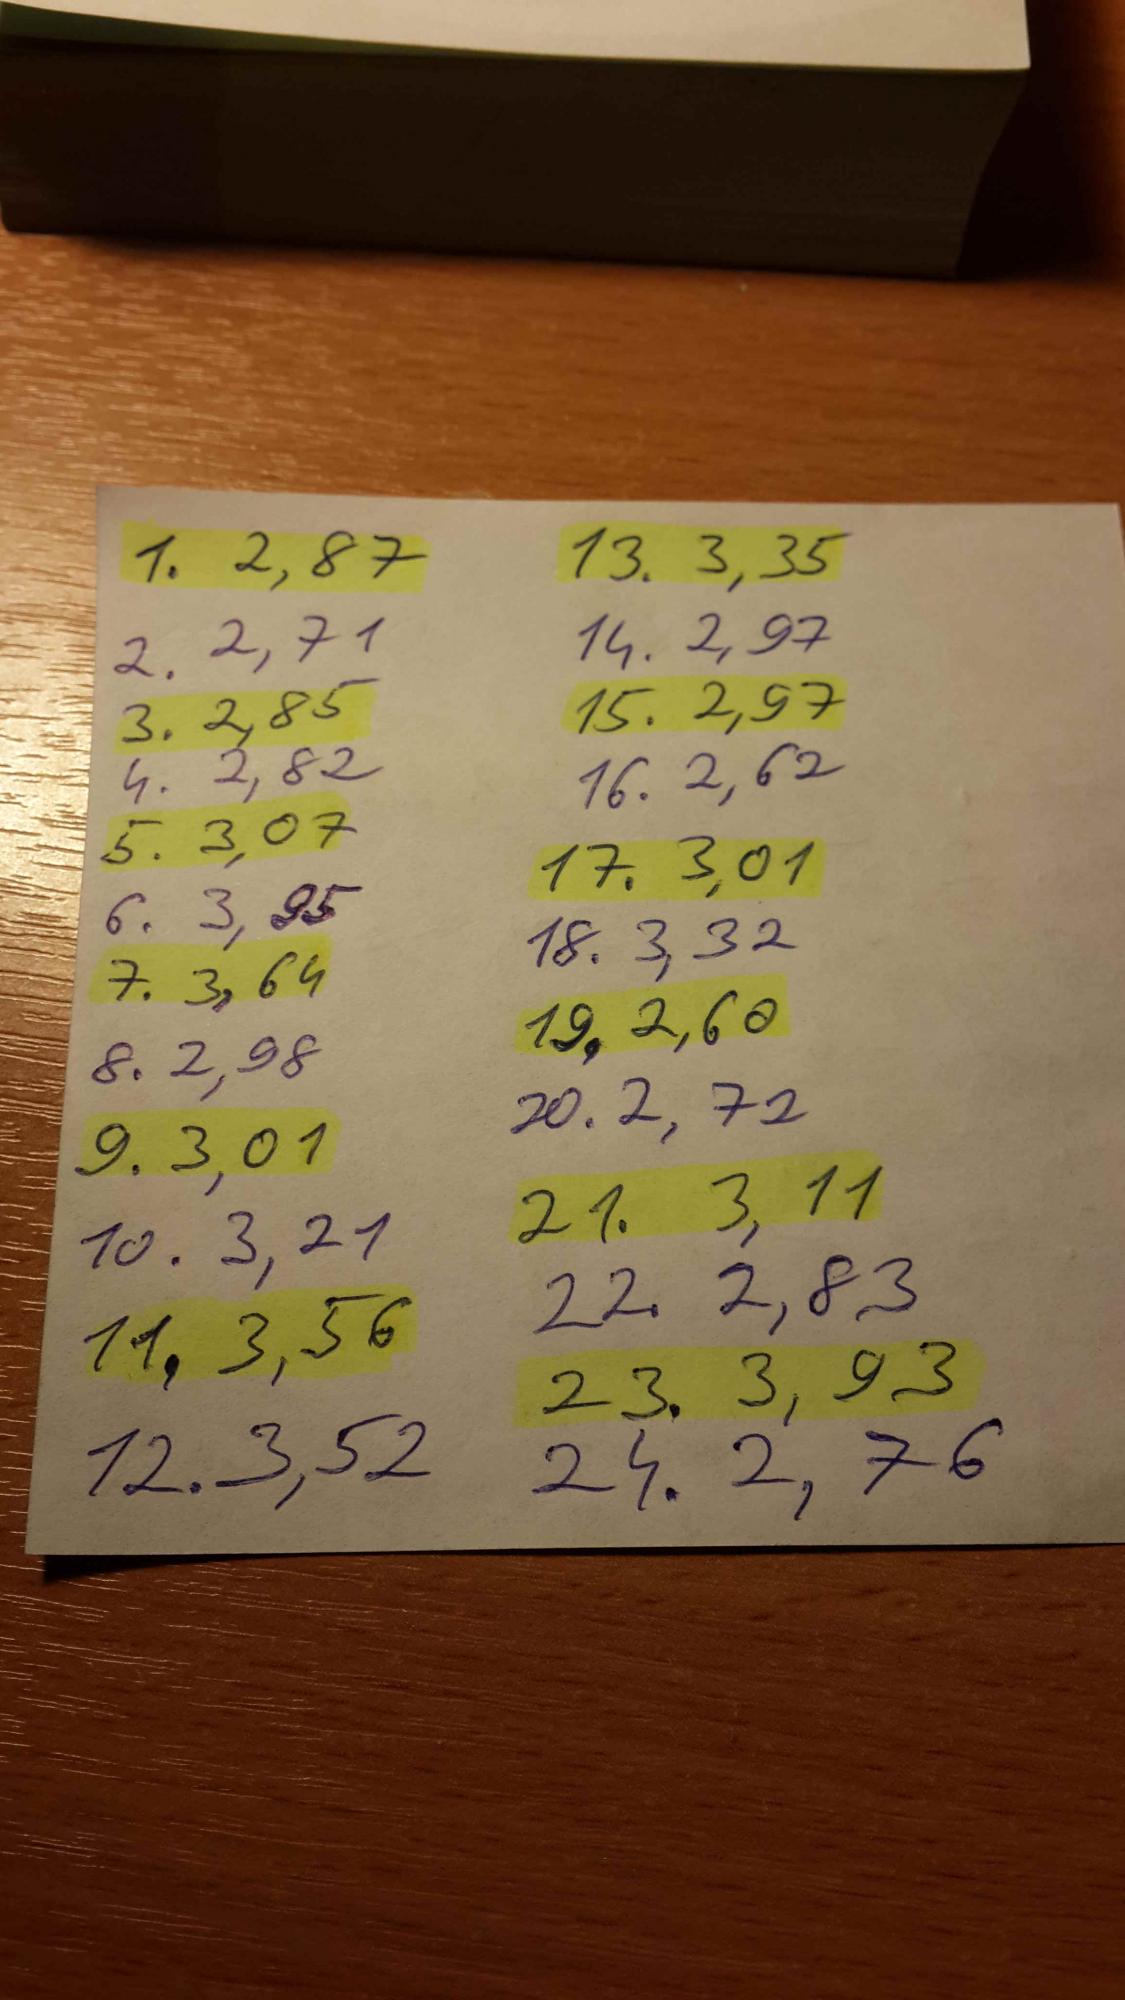 1. 2,87
2. 2,71
3. 2,85
4. 2,82
5. 3,07
6. 3,95
7. 3,64
8. 2,98
9. 3,01
10. 3,21
11. 3,56
12. 3,52
13. 3,35
14. 2,97
15. 2,97
16. 2,62
17. 3,01
18. 3,32
19. 2,60
20. 2,72
21. 3,11
22. 2,83
23. 3,93
24. 2,76